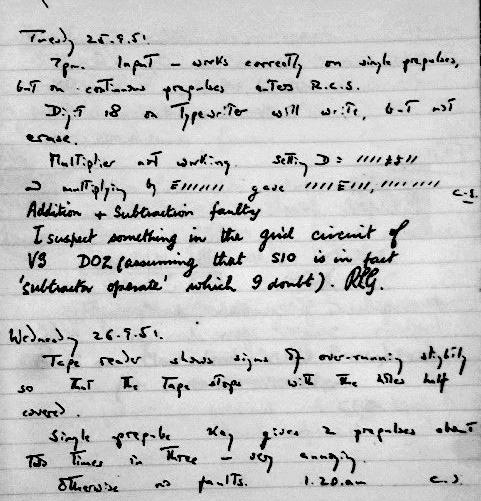 Tuesday 25.9.51.
7pm. Input – works correctly on single prepulses,
but on continuous prepulses enters R.C.S.
Digit 18 on Typewriter will write, but not
erase.
Multiplier not working. Setting D =
& multiplying by E/////// gave ////E///, //////// C.S.
Addition & Subtraction faulty
I suspect something in the grid circuit of
V9 D02 (assuming that S10 is in fact
'subtractor operate' which I doubt).
Wednesday 26.9.51.
Tape reader shows signs of over-running slightly
so that the tape stops with the holes half
covered.
Single prepulse Key gives 2 prepulses about
two times in three – very annoying.
Otherwise no faults. 1.20.am C.S.